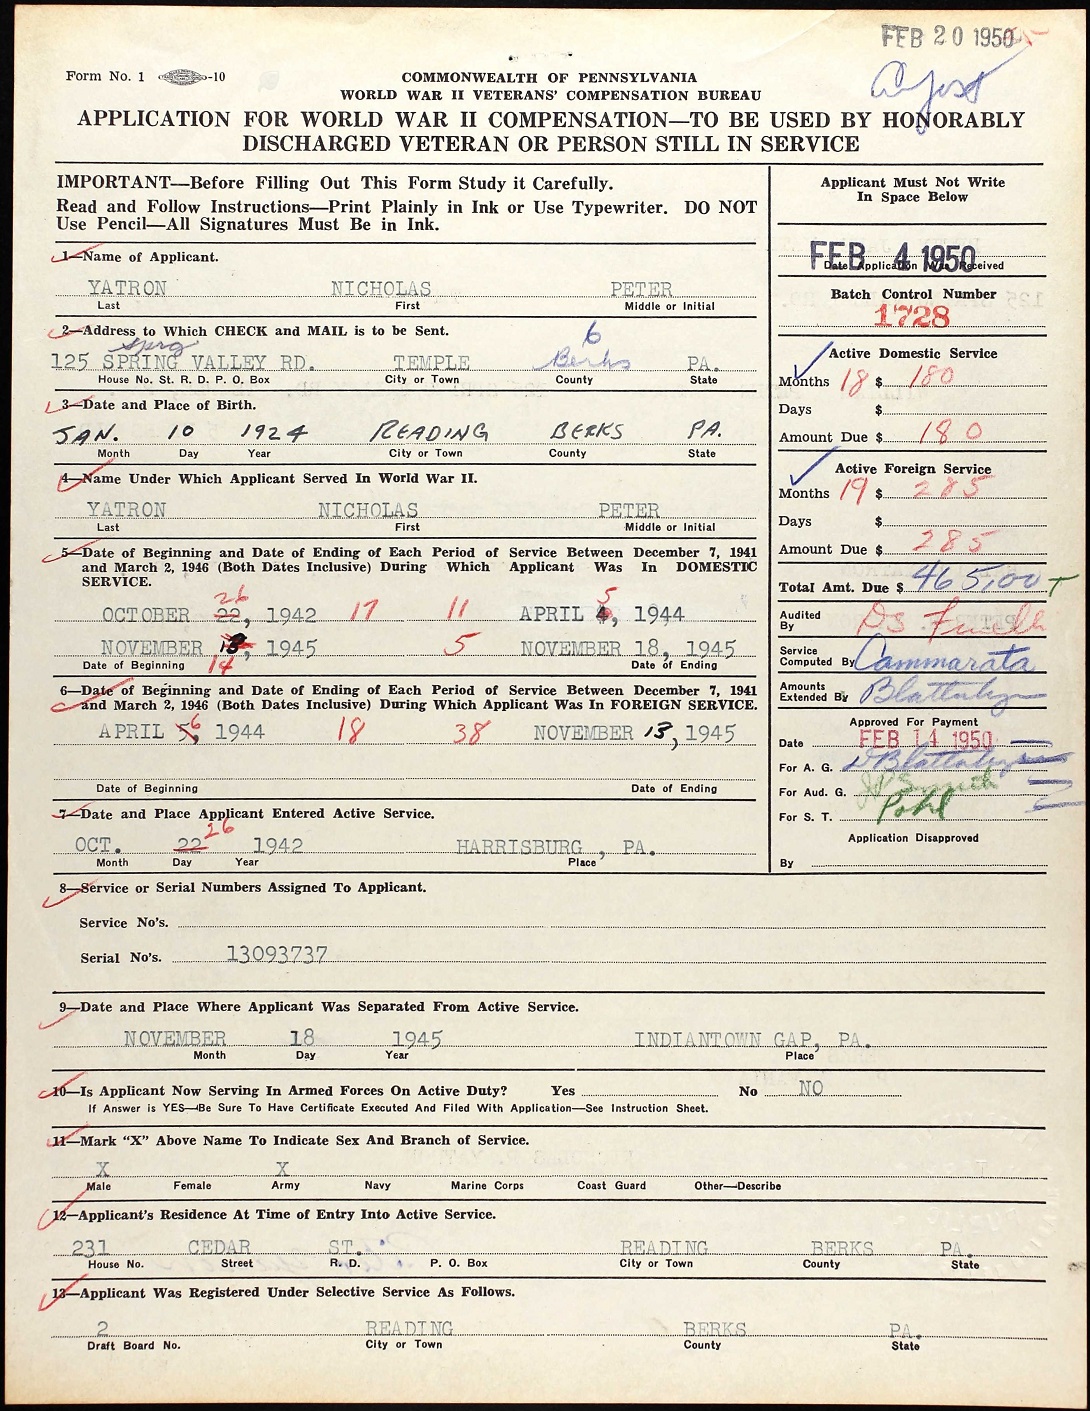 FEB 20 1950
Form No. 1 -10
COMMONWEALTH OF PENNSYLVANIA
WORLD WAR II VETERANS' COMPENSATION BUREAU
APPLICATION FOR WORLD WAR II COMPENSATION—TO BE USED BY HONORABLY
DISCHARGED VETERAN OR PERSON STILL IN SERVICE
IMPORTANT—Before Filling Out This Form Study it Carefully.
Read and Follow Instructions—Print Plainly in Ink or Use Typewriter. DO NOT
Use Pencil—All Signatures Must Be in Ink.
1—Name of Applicant.
YATRON NICHOLAS PETER
Last First Middle or Initial
2—Address to Which CHECK and MAIL is to be Sent.
sprg 6
125 SPRING VALLEY RD. TEMPLE Berks PA.
House No. St. R. D. P. O. Box City or Town County State
3—Date and Place of Birth.
JAN. 10 1924 READING BERKS PA.
Month Day Year City or Town County State
4—Name Under Which Applicant Served In World War II.
YATRON NICHOLAS PETER
Last First Middle or Initial
5—Date of Beginning and Date of Ending of Each Period of Service Between December 7, 1941
and March 2, 1946 (Both Dates Inclusive) During Which Applicant Was In DOMESTIC
SERVICE.
26 5
OCTOBER 22, 1942 17 11 APRIL 4, 1944
NOVEMBER 13, 1945 5 NOVEMBER 18, 1945
14
Date of Beginning Date of Ending
6—Date of Beginning and Date of Ending of Each Period of Service Between December 7, 1941
and March 2, 1946 (Both Dates Inclusive) During Which Applicant Was In FOREIGN SERVICE.
APRIL 5, 6 1944 18 38 NOVEMBER 13, 1945
Date of Beginning Date of Ending
7—Date and Place Applicant Entered Active Service.
26
OCT. 22 1942 HARRISBURG , PA.
Month Day Year Place
Applicant Must Not Write
In Space Below
FEB 4 1950
Date Application Was Received
Batch Control Number
1728
Active Domestic Service
Months 18 $ 180
Days $
Amount Due $ 180
Active Foreign Service
Months 19 $ 285
Days $
Amount Due $ 285
Total Amt. Due $ 465.00
Audited
By
Service
Computed By Cammarata
Amounts
Extended By
Approved For Payment
Date FEB 14 1950
For A. G.
For Aud. G. Smith
For S. T. Pohl
Application Disapproved
By
8—Service or Serial Numbers Assigned To Applicant.
Service No's.
Serial No's. 13093737
9—Date and Place Where Applicant Was Separated From Active Service.
NOVEMBER 18 1945 INDIANTOWN GAP, PA.
Month Day Year Place
10—Is Applicant Now Serving In Armed Forces On Active Duty? Yes No NO
If Answer is YES—Be Sure To Have Certificate Executed And Filed With Application—See Instruction Sheet.
11—Mark "X" Above Name To Indicate Sex And Branch of Service.
X X
Male Female Army Navy Marine Corps Coast Guard Other—Describe
12—Applicant's Residence At Time of Entry Into Active Service.
231 CEDAR ST. READING BERKS PA.
House No. Street R. D. P. O. Box City or Town County State
13—Applicant Was Registered Under Selective Service As Follows.
2 READING BERKS PA.
Draft Board No. City or Town County State